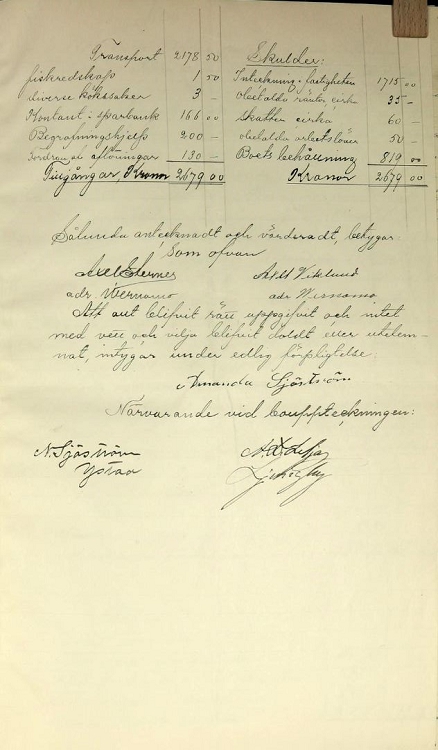 Transport 2178 50
fiskredskap 1 50
diverse kökssaker 3 –
Kontant i sparbank 166 00
Begravningshjelp 200 –
130 –
Tillgångar Kronor 2679 00
Skulder:
Inteckning i fastigheten 1715 00
Obetalda räntor cirk 35 –
Skatter cirka 60 –
obetalda arbetslöner 50 –
Boets behållning 819 00
Kronor 2679 00
Sålunda antecknadt och värderadt, betygar:
Som ofvan
Axel
adr. Wernamo adr Wernamo
Att allt blifvit rätt uppgifvit och intet
med vett och vilja blifvit doldt eller utelem-
nat, intygar under edlig förpligtelse:
Amanda Sjöström
Närvarande vid bouppteckningen:
N. Sjöström
Ystad
Ljungby